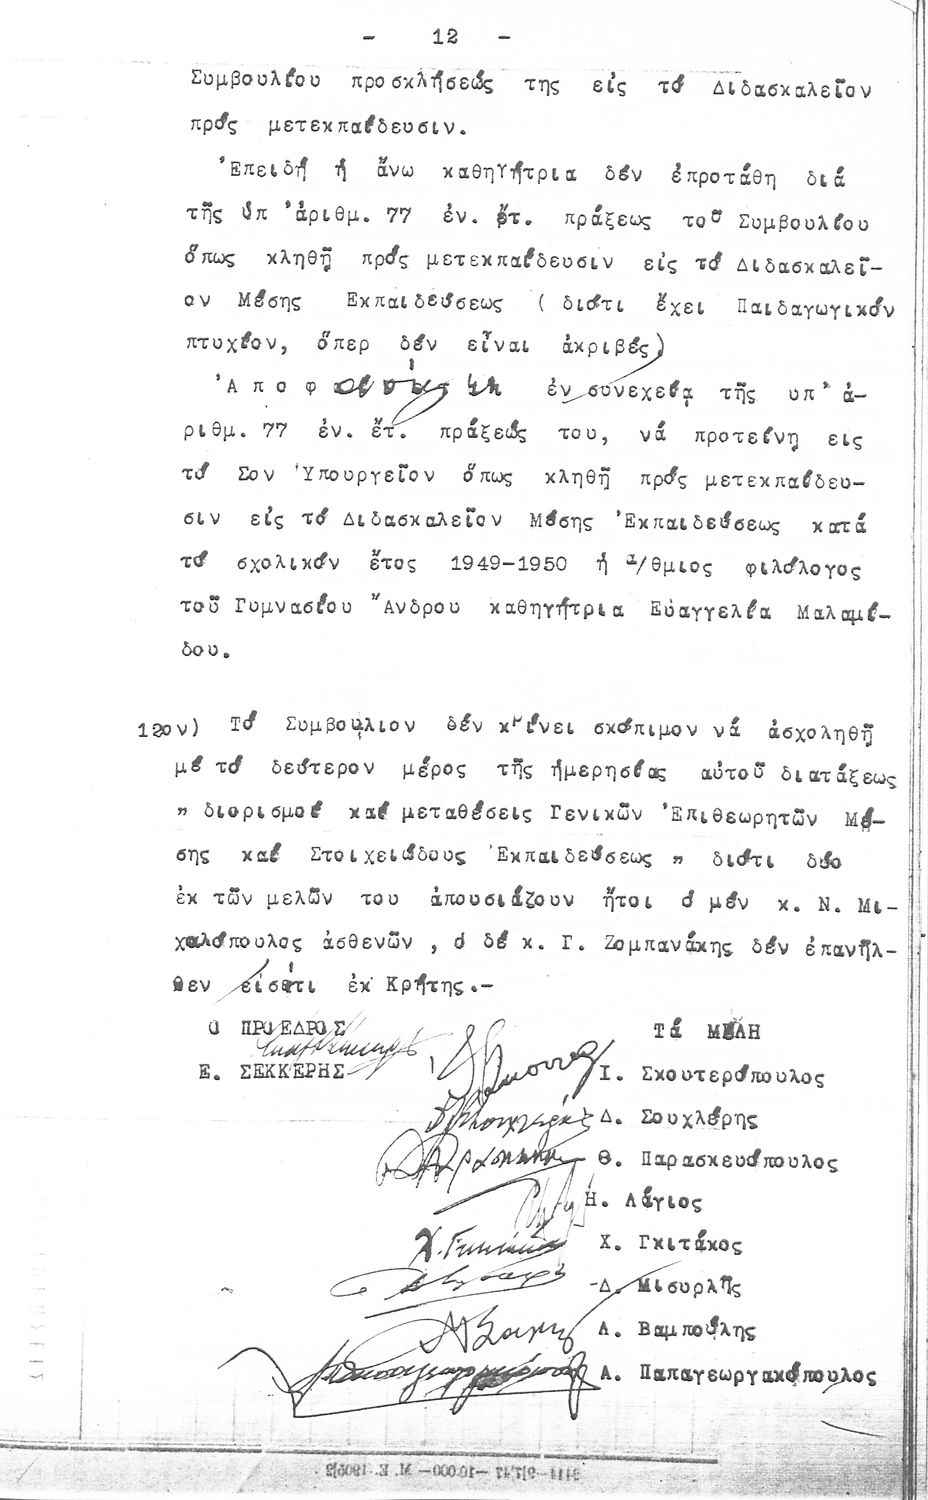 - 12 -
Συμβουλίου προσκλήσεώς της εἰς τό Διδασκαλεῖον
πρός μετεκπαίδευσιν.
Ἐπειδή ἡ ἄνω καθηγήτρια δέν ἐπροτάθη διά
τῆς ὑπ' ἀριθμ. 77 ἐν. ἔτ. πράξεως τοῦ Συμβουλίου
ὅπως κληθῇ πρός μετεκπαίδευσιν εἰς τό Διδασκαλεῖ-
ον Μέσης Ἐκπαιδεύσεως ( διότι ἔχει Παιδαγωγικόν
πτυχίον, ὅπερ δέν εἶναι ἀκριβές)
Ἀποφαίνεται ἐν συνεχείᾳ τῆς υπ' ἀ-
ριθμ. 77 ἐν. ἔτ. πράξεώς του, νά προτείνῃ εις
τό Σον Ὑπουργεῖον ὅπως κληθῇ πρός μετεκπαίδευ-
σιν εἰς τό Διδασκαλεῖον Μέσης Ἐκπαιδεύσεως κατά
τό σχολικόν ἔτος 1949-1950 ἡ α/θμιος φιλόλογος
τοῦ Γυμνασίου Ἄνδρου καθηγήτρια Εὐαγγελία Μαλαμί-
δου.
12ον) Τό Συμβούλιον δέν κρίνει σκόπιμον νά ἀσχοληθῇ
μέ τό δεύτερον μέρος τῆς ἡμερησίας αὐτοῦ διατάξεως
" διορισμοί καί μεταθέσεις Γενικῶν Ἐπιθεωρητῶν Μέ-
σης καί Στοιχειώδους Ἐκπαιδεύσεως " διότι δύο
ἐκ τῶν μελῶν του ἀπουσιάζουν ἤτοι ὁ μέν κ. Ν. Μι-
χαλόπουλος ἀσθενῶν , ὁ δέ κ. Γ. Ζομπανάκης δέν ἐπανῆλ-
θεν εἰσέτι ἐκ Κρήτης.-
Ο ΠΡΟΕΔΡΟΣ Τά ΜΕΛΗ
Ε. ΣΕΚΚΕΡΗΣ
Ι. Σκουτερόπουλος
Δ. Σουχλέρης
Θ. Παρασκευόπουλος
Η. Λάγιος
Χ. Γκιτάκος
Δ. Μισυρλῆς
Λ. Βαμπούλης
Α. Παπαγεωργακόπουλος